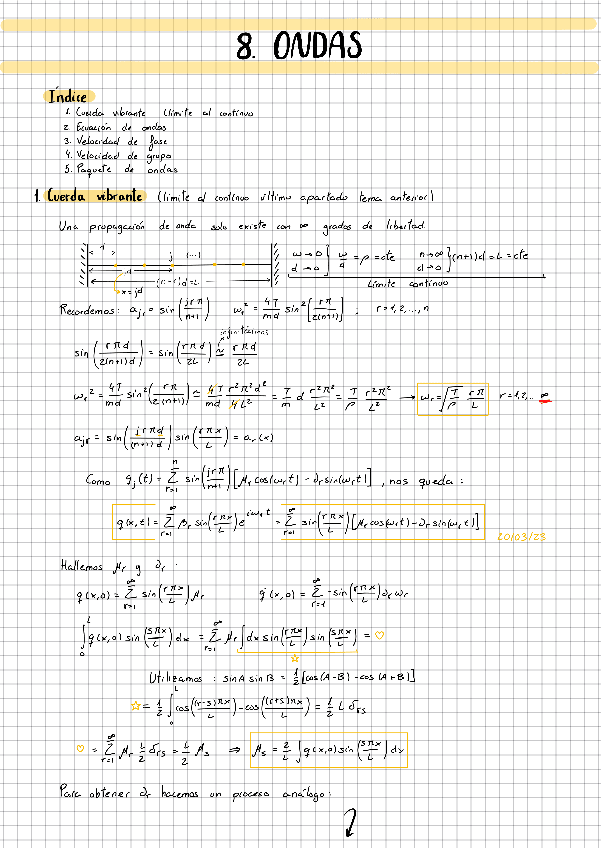 8. ONDAS
Índice
1. Cuerda vibrante (límite al continuo
2. Ecuación de ondas
3. Velocidad de fase
4. Velocidad de grupo
5. Paquete de ondas
1. Cuerda vibrante (límite al continuo último apartado tema anterior)
Una propagación de onda solo existe con ∞ grados de libertad.
j (...)
d
x=jd
(n+1)d=L
m→0 d→0 } m/d = ρ = cte n→∞ d→0 } (n+1)d = L = cte
Límite continuo
Recordemos: a_jr = sin(jrπ/(n+1)) ω_r² = 4T/(md) sin²[rπ/(2(n+1))] ; r=1,2,...,n
infinitésimos
sin(rπd/(2(n+1)d)) = sin(rπd/(2L)) ≃ rπd/(2L)
ω_r² = 4T/(md) sin²(rπ/(2(n+1))) ≃ 4T/(md) r²π²d²/(4L²) = T/m d r²π²/L² = T/ρ r²π²/L² → ω_r = √(T/ρ) rπ/L r=1,2,... ∞
a_jr = sin(jrπd/((n+1)d)) sin(rπx/L) = a_r(x)
Como q_j(t) = Σ_{r=1}^{n} sin(jrπ/(n+1)) [μ_r cos(ω_r t) - ∂_r sin(ω_r t)] , nos queda:
q(x,t) = Σ_{r=1}^{∞} β_r sin(rπx/L) e^{iω_r t} = Σ_{r=1}^{∞} sin(rπx/L) [μ_r cos(ω_r t) - ∂_r sin(ω_r t)]
20/03/23
Hallemos μ_r y ∂_r.
q(x,0) = Σ_{r=1}^{∞} sin(rπx/L) μ_r q̇(x,0) = Σ_{r=1}^{∞} -sin(rπx/L) ∂_r ω_r
∫_0^L q(x,0) sin(sπx/L) dx = Σ_{r=1}^{∞} μ_r ∫ dx sin(rπx/L) sin(sπx/L) = ♡
☆
Utilizamos: sinA sinB = 1/2 [cos(A-B) - cos(A+B)]
☆ = 1/2 ∫_0^L cos((r-s)πx/L) - cos((r+s)πx/L) = 1/2 L δ_rs
♡ = Σ_{r=1}^{∞} μ_r L/2 δ_rs = L/2 μ_s ⇒ μ_s = 2/L ∫ q(x,0) sin(sπx/L) dx
Para obtener ∂_r hacemos un proceso análogo: